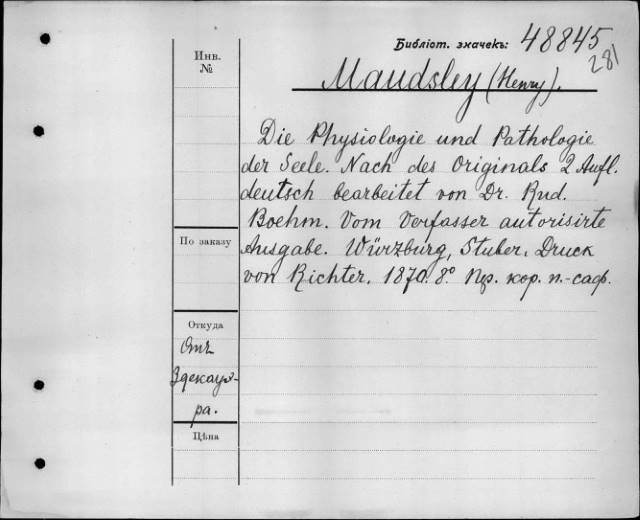 Библіот. значекъ: 48845
281
Инв.
№
Maudsley (Henry).
Die Physiologie und Pathologie
der Seele. Nach des Originals 2 Aufl.
deutsch bearbeitet von Dr. Rud.
Boehm. Vom Verfasser autorisirte
Ausgabe. Würzburg, Stuber. Druck
von Richter. 1870. 8° Пр. кор. п.-саф.
По заказу
Откуда
Отъ
Здекауэ-
ра.
Цѣна